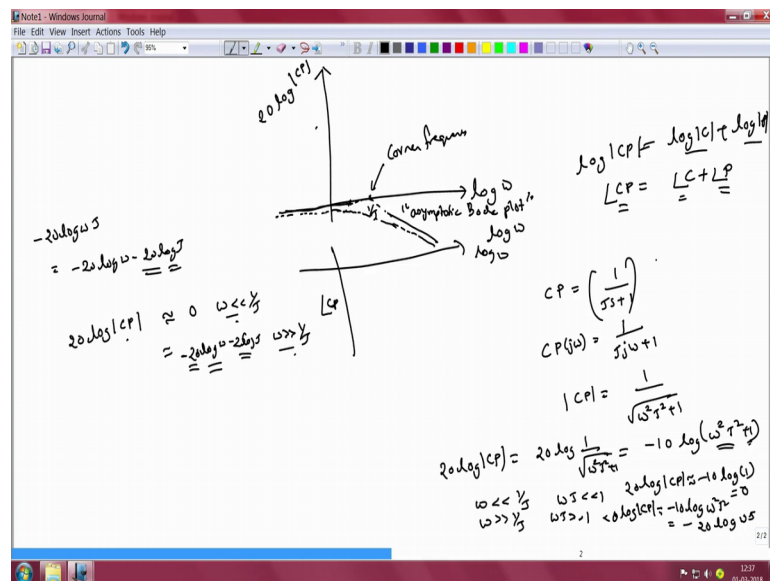 Note1 - Windows Journal
File Edit View Insert Actions Tools Help
95%
20 log |CP|
Corner frequency
log ω
1/J
"asymptotic Bode plot"
log ω
log ω
∠CP
-20 log ωJ
= -20 log ω - 20 log J
20 log |CP| ≈ 0 ω << 1/J
= -20 log ω - 20 log J ω >> 1/J
log |CP| = log |C| + log |P|
∠CP = ∠C + ∠P
CP = (1/(Js+1))
CP(jω) = 1/(Jjω+1)
|CP| = 1/√(ω²J²+1)
20 log |CP| = 20 log 1/√(ω²J²+1) = -10 log (ω²J²+1)
ω << 1/J ωJ << 1 20 log |CP| ≈ -10 log (1) = 0
ω >> 1/J ωJ >> 1 20 log |CP| = -10 log ω²J²
= -20 log ωJ
2/2
2
12:37
01-03-2018